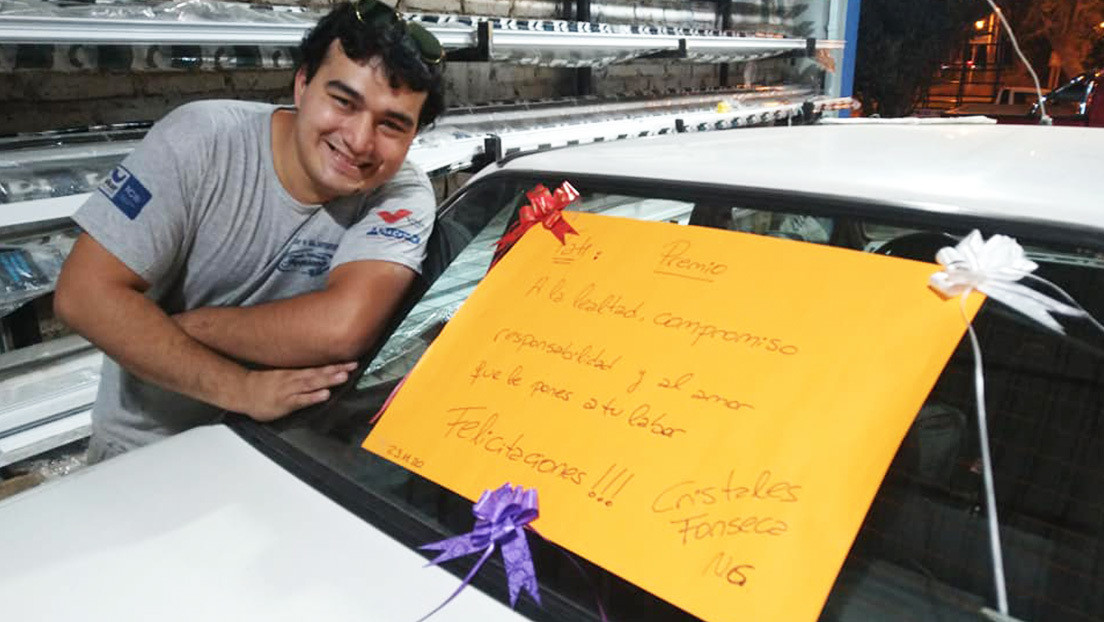 Premio
A la lealtad, compromiso
responsabilidad y al amor
que le pones a tu labor
Felicitaciones!!!
Cristales
Fonseca